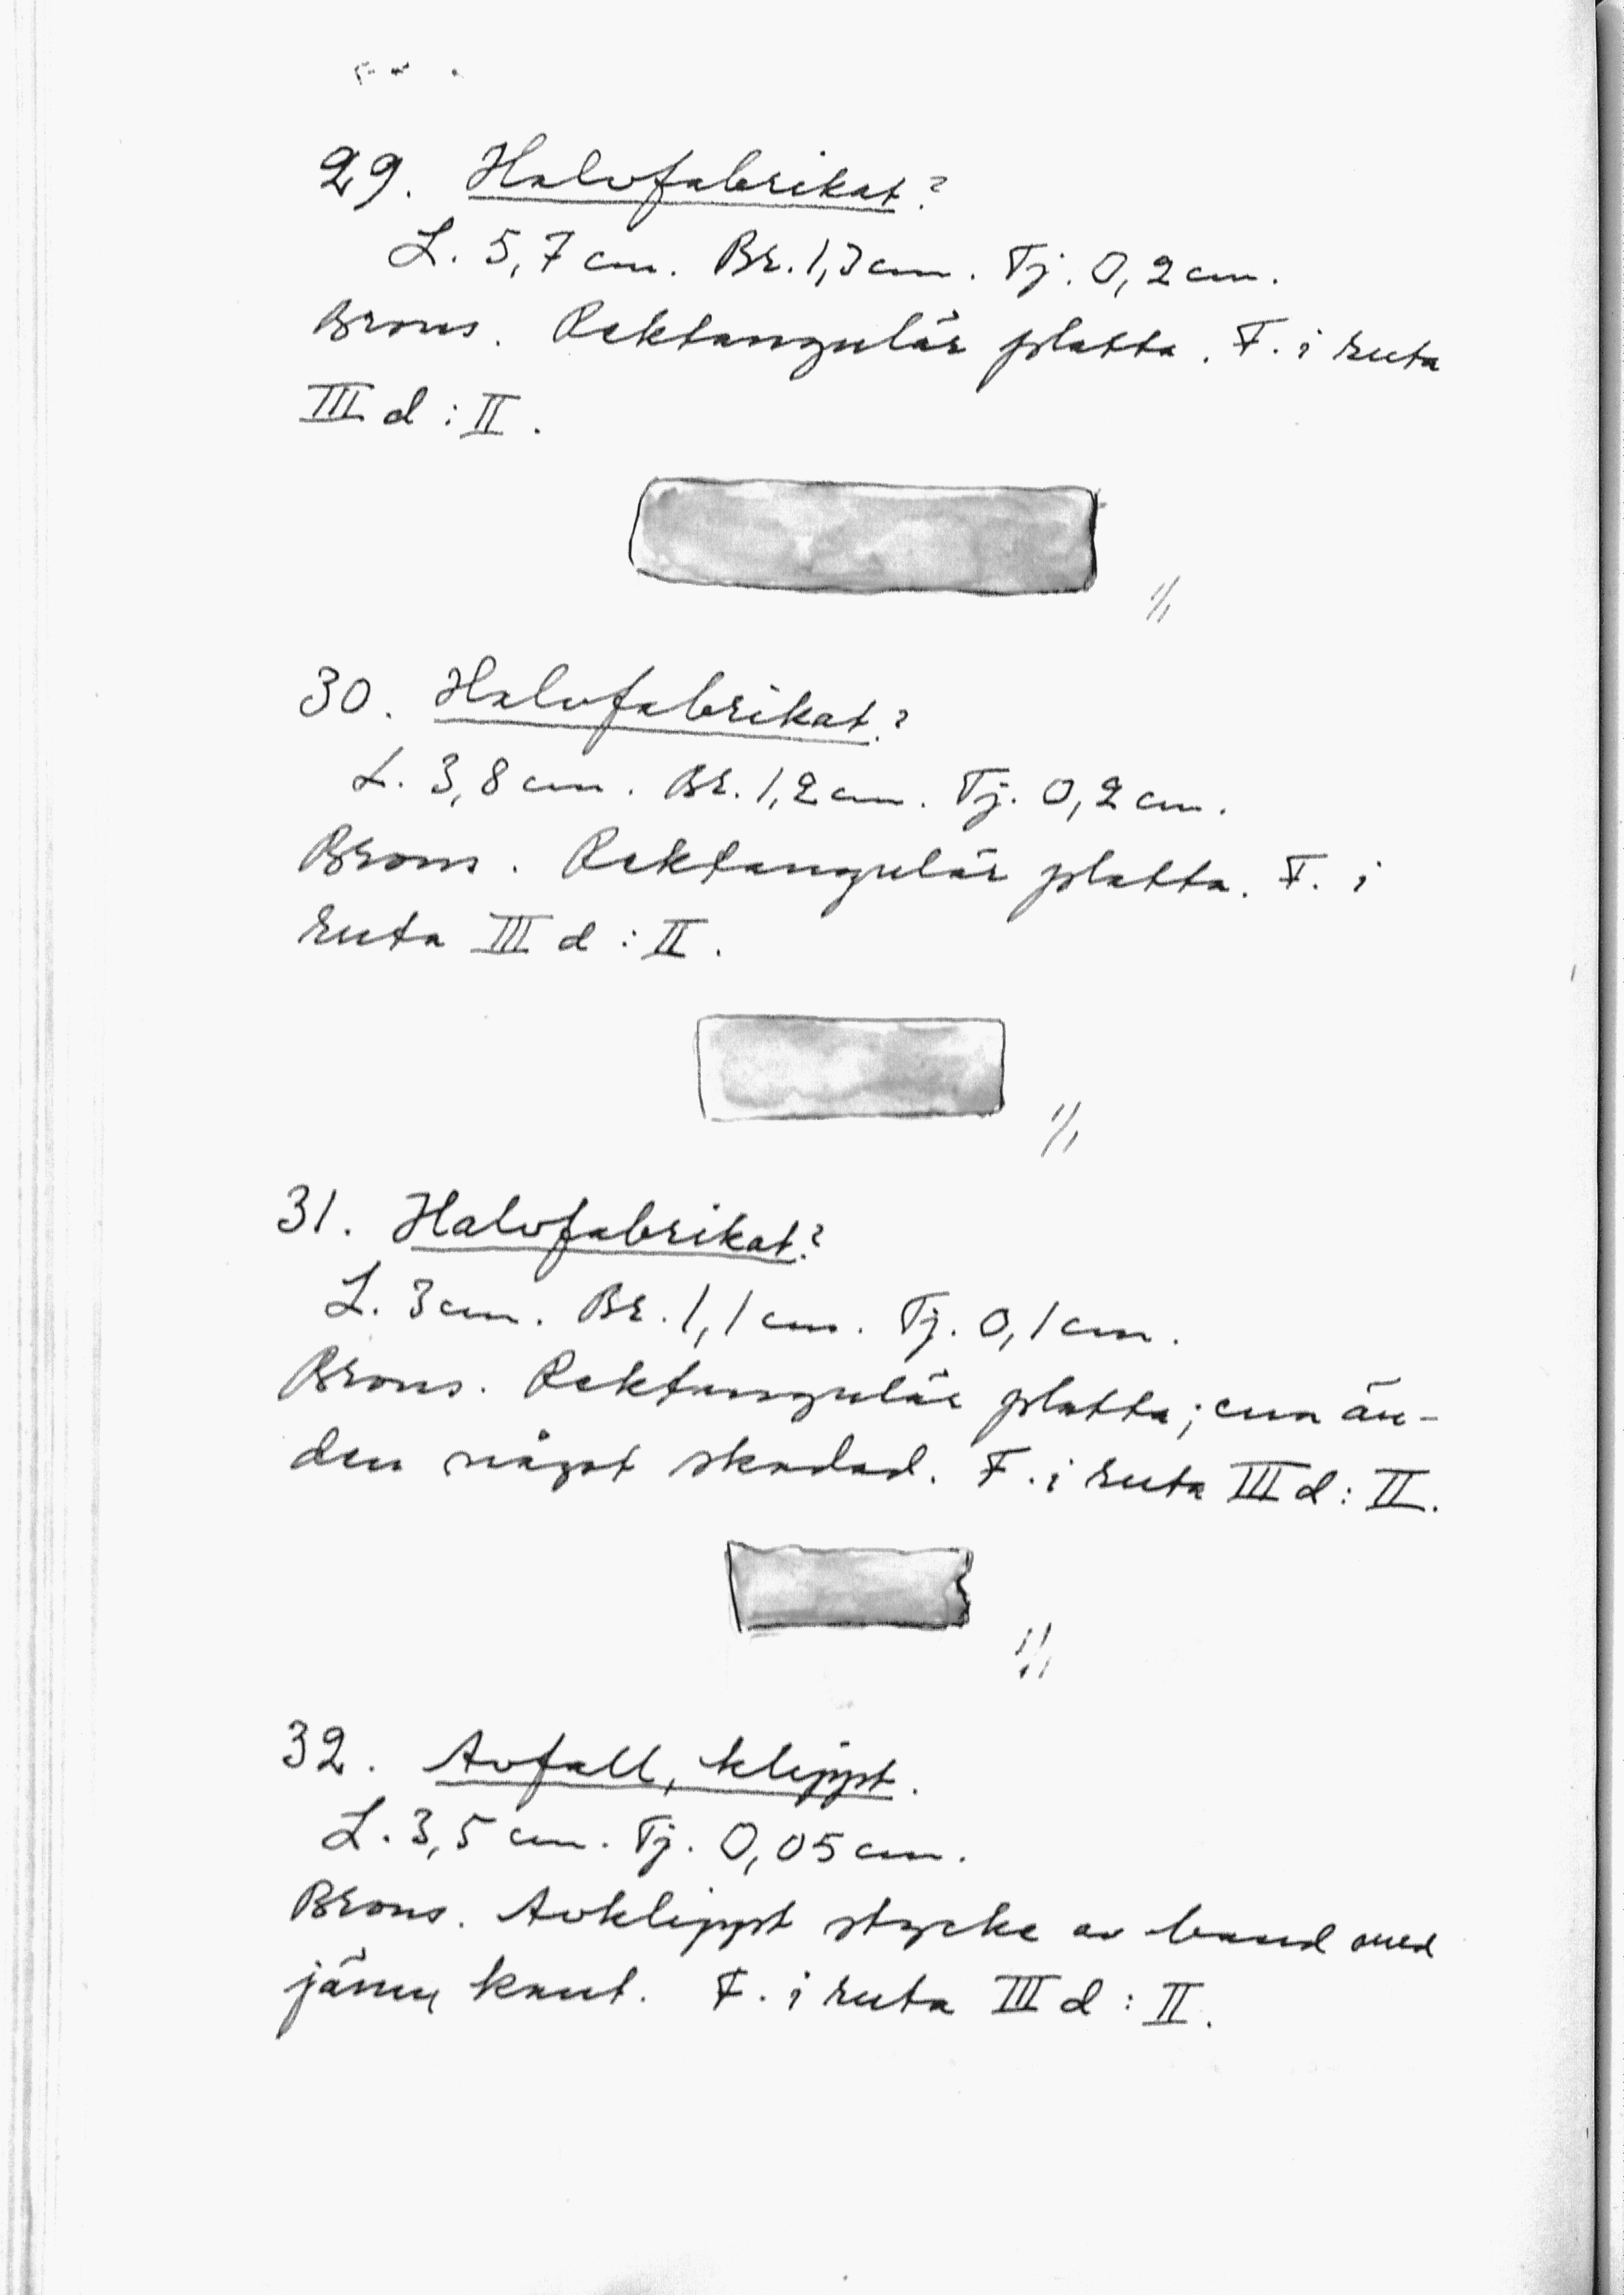 29. Halvfabrikat?
L. 5,7 cm. Br. 1,3 cm. Tj. 0,2 cm.
Brons. Rektangulär platta. F. i ruta
III d : II.
1/1
30. Halvfabrikat?
L. 3,8 cm. Br. 1,2 cm. Tj. 0,2 cm.
Brons. Rektangulär platta. F. i
ruta III d : II.
1/1
31. Halvfabrikat?
L. 3 cm. Br. 1,1 cm. Tj. 0,1 cm.
Brons. Rektangulär platta; ena än-
den något skadad. F. i ruta III d : II.
1/1
32. Avfall, klippt.
L. 3,5 cm. Tj. 0,05 cm.
Brons. Avklippt stycke av band med
jämn kant. F. i ruta III d : II.